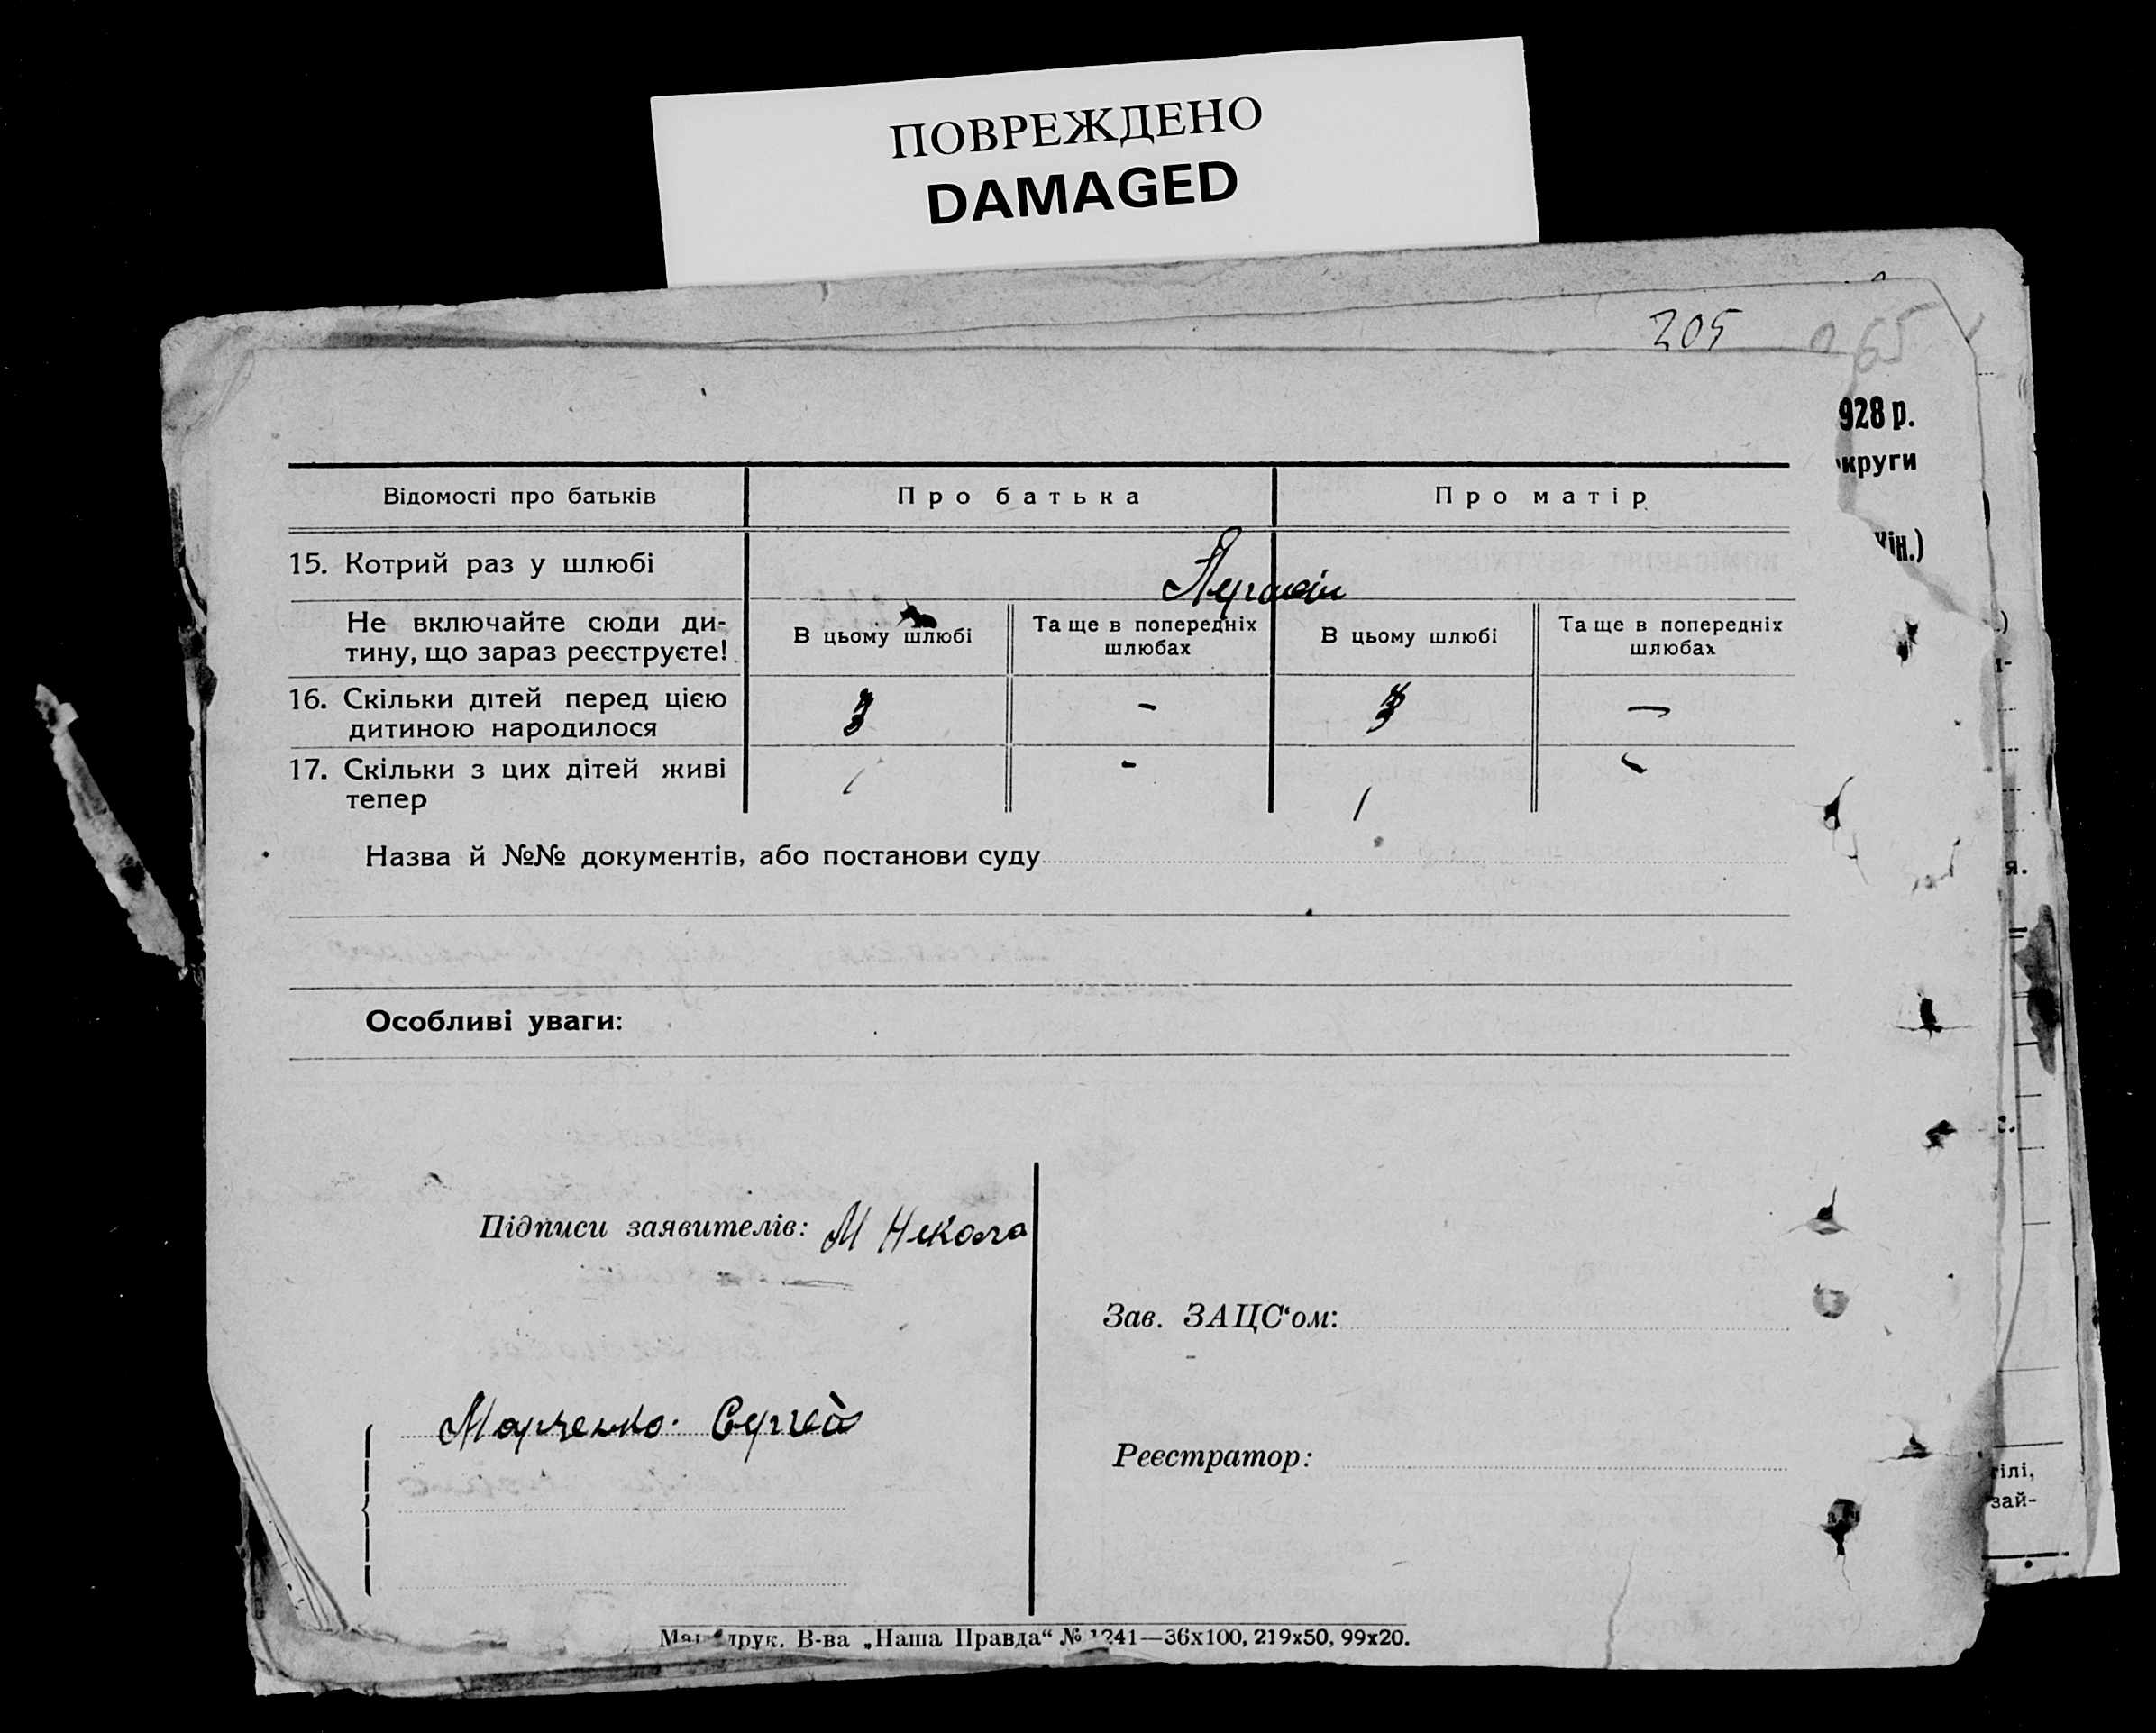 ПОВРЕЖДЕНО
DAMAGED
205
65
928 р.
круги
Відомості про батьків
Про батька
Про матір
15. Котрий раз у шлюбі
Не включайте сюди ди-
тину, що зараз реєструєте!
В цьому шлюбі
Та ще в попередніх
шлюбах
В цьому шлюбі
Та ще в попередніх
шлюбах
16. Скільки дітей перед цією
дитиною народилося
3 - 3 —
17. Скільки з цих дітей живі
тепер
1 - 1 -
Назва й №№ документів, або постанови суду
Особливі уваги:
Підписи заявителів: М Никола
Зав. ЗАЦС‘ом:
Марченко Сергей
Реєстратор:
ілі,
зай-
друк. В-ва „Наша Правда“ № 1241—36х100, 219х50, 99х20.